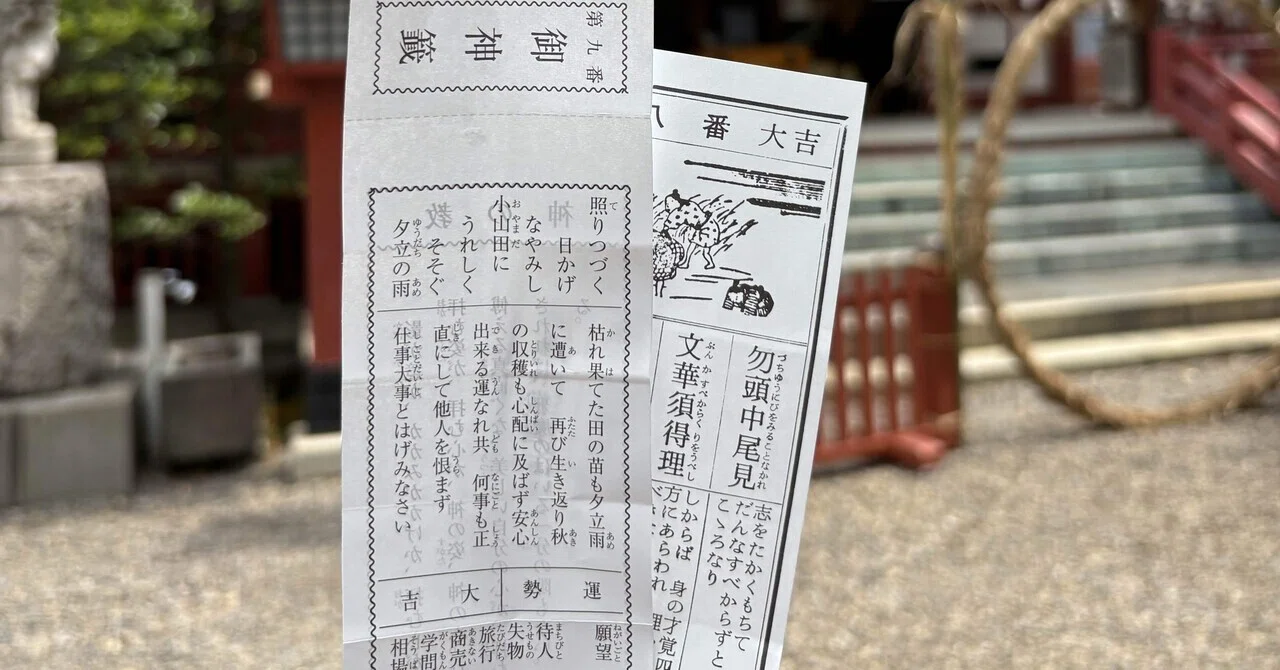 第九番
御神籤
照りつづく
日かげ
なやみし
小山田に
うれしく
そそぐ
夕立の雨
枯れ果てた田の苗も夕立雨
に遭いて 再び生き返り秋
の収穫も心配に及ばず安心
出来る運なれ共 何事も正
直にして他人を恨まず
仕事大事とはげみなさい
運勢 大吉
願望
待人
失物
旅行
商売
学問
相場
番 大吉
勿頭中尾見
文華須得理
志をたかくもちて
だんなすべからずと
こゝろなり
しからば 身の才覚四
方にあらわれ 理